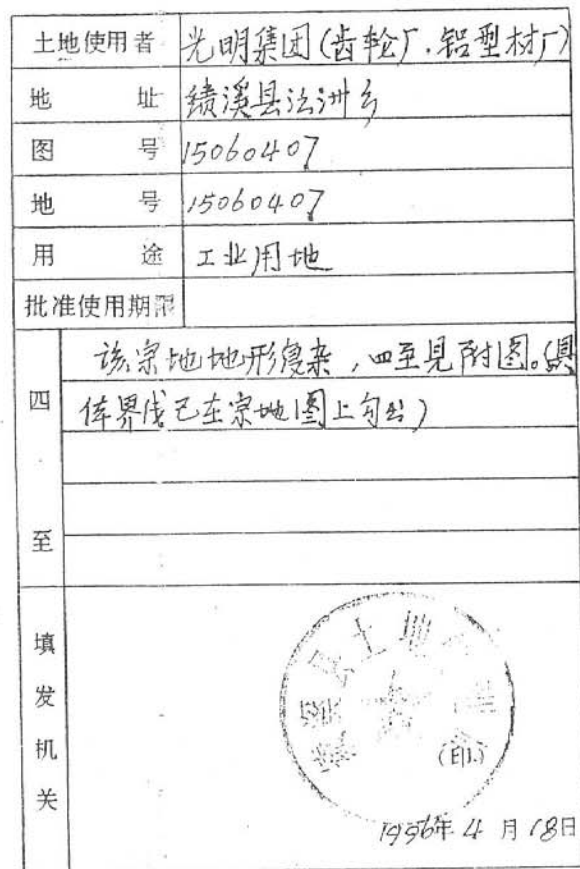 土地使用者 光明集团(齿轮厂.铝型材厂)
地址 绩溪县汪洲乡
图号 15060407
地号 15060407
用途 工业用地
批准使用期限
四至 该宗地地形复杂,四至见附图。(具
体界线已在宗地图上勾出)
填发机关
绩溪县土地管理
(印)
1996年4月18日